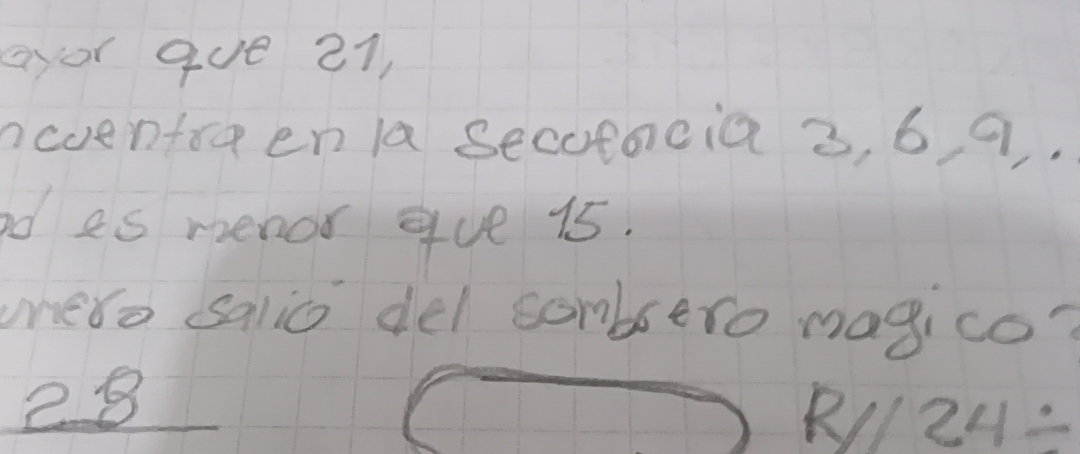 ayor que 21,
ncuentra en la secuencia 3, 6, 9, ..
ad es menor que 15.
umero salió del sombrero magico?
28
R// 24 ÷